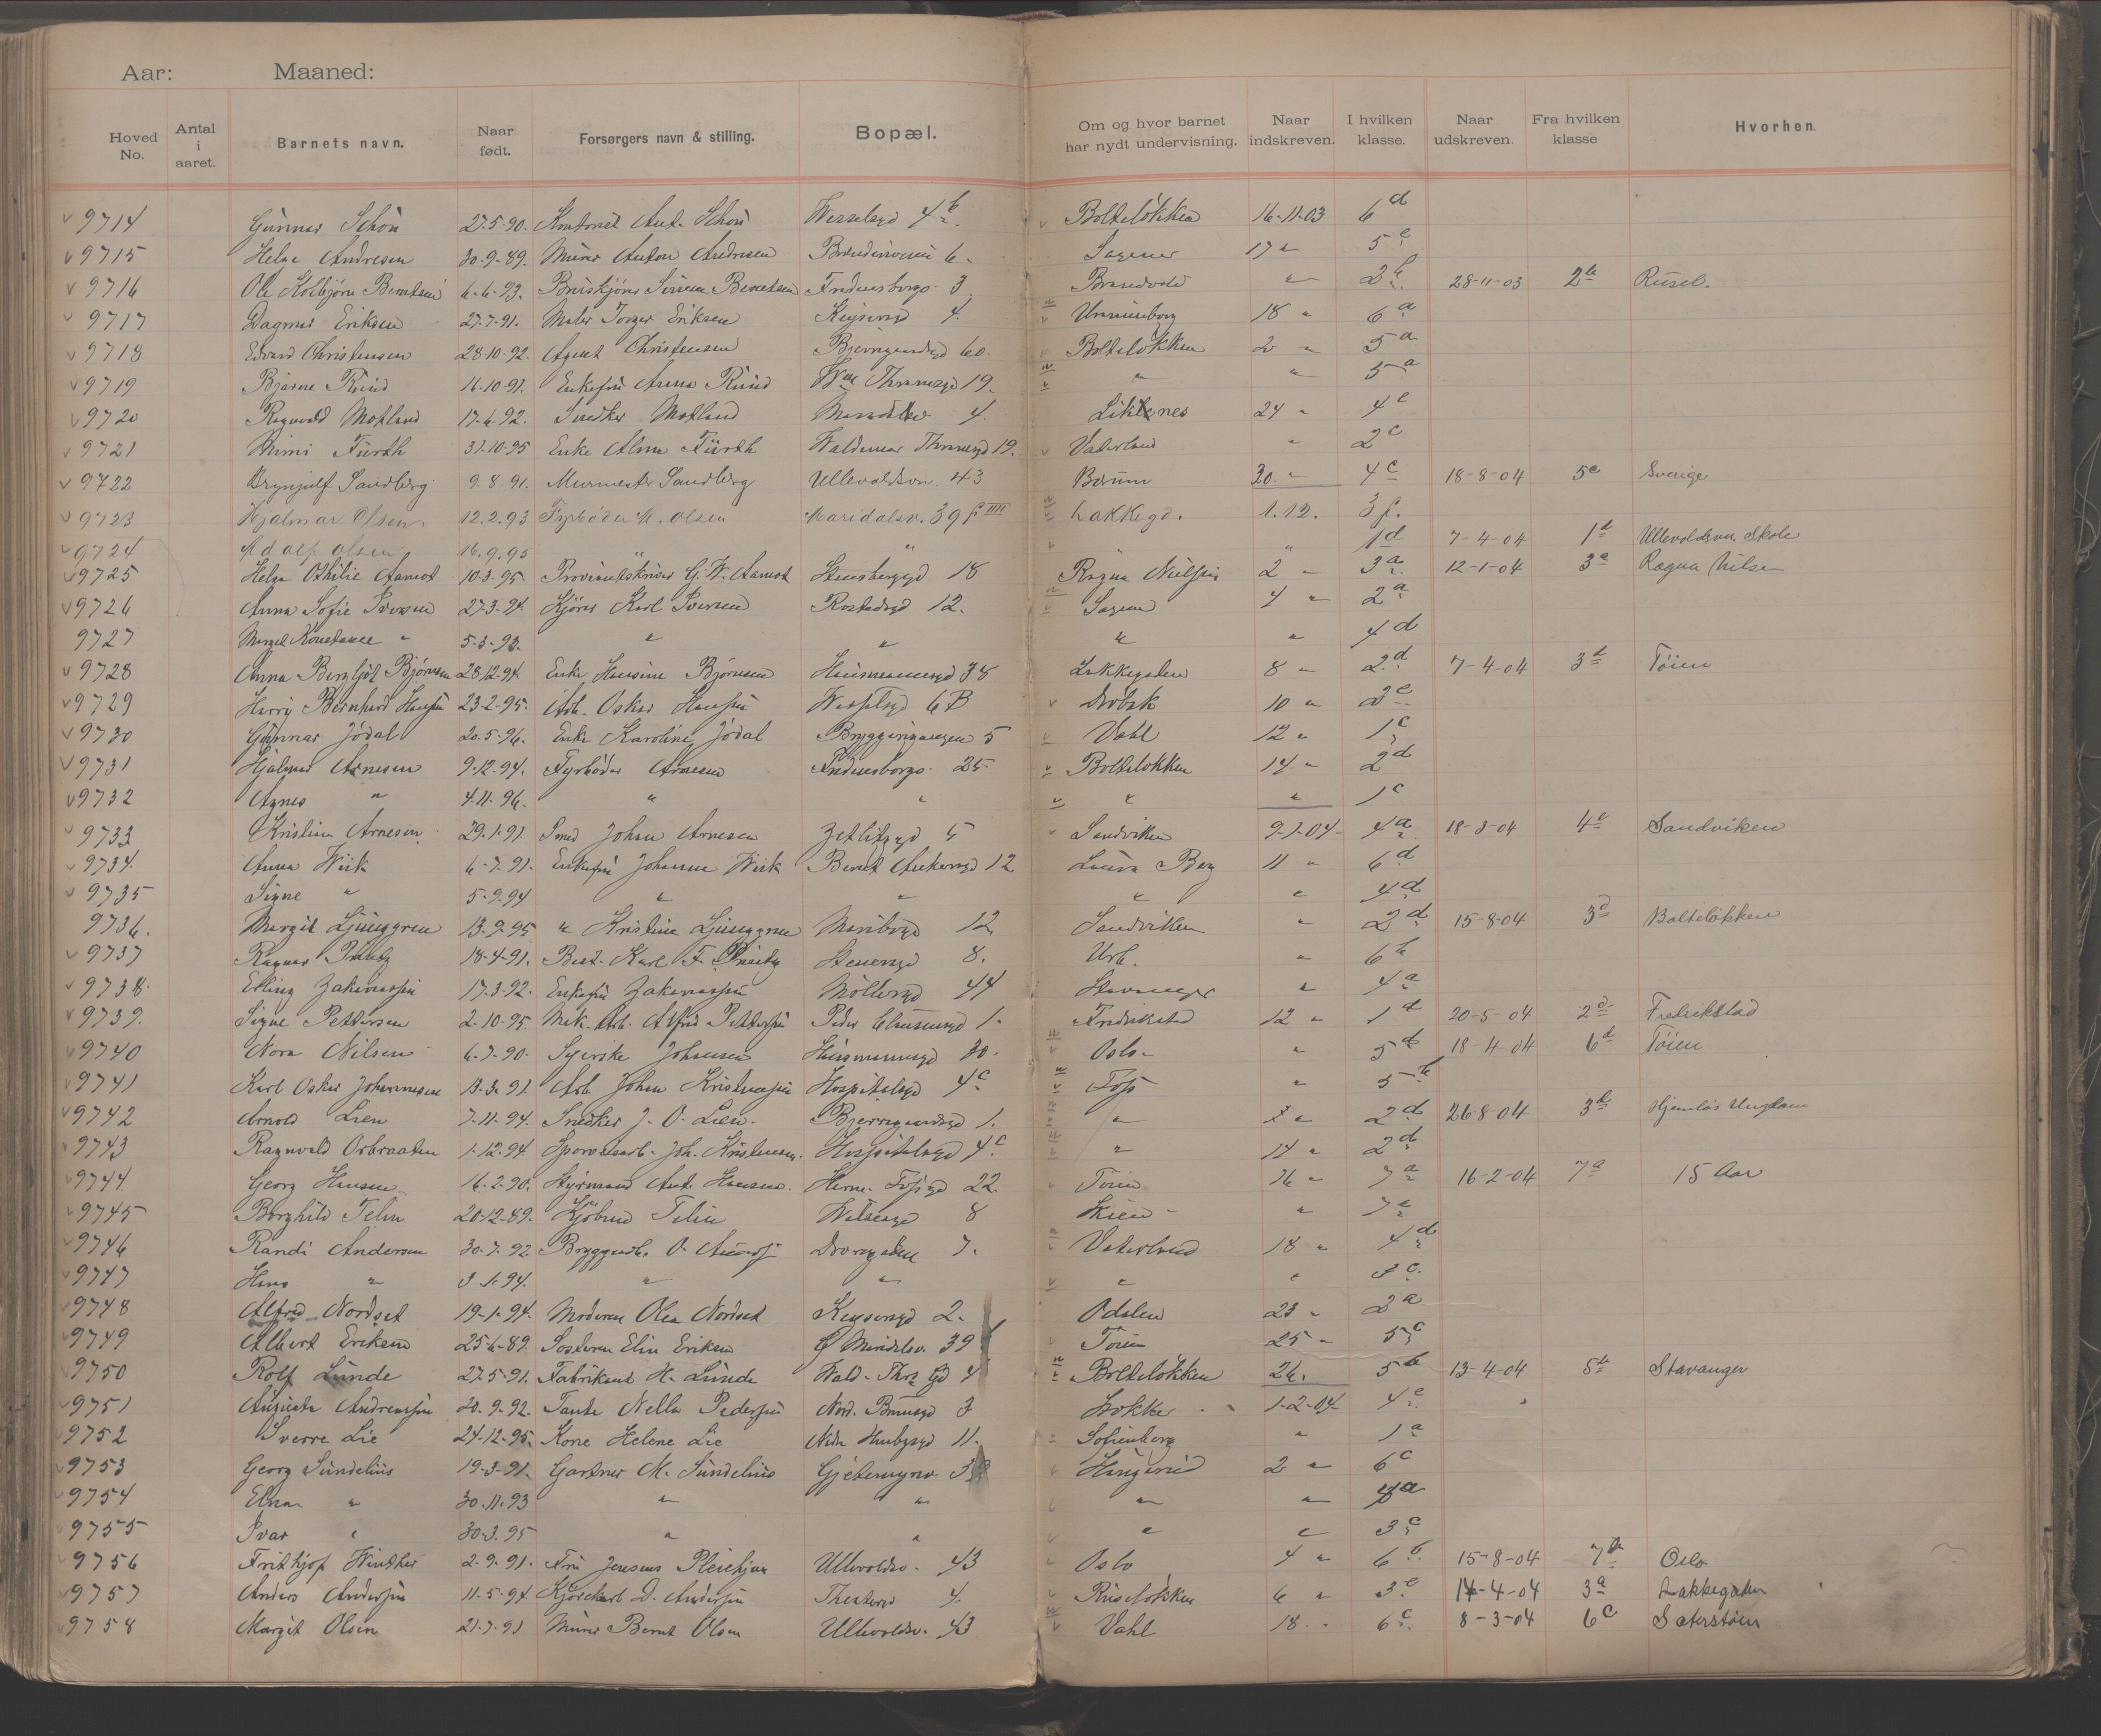 Aar: Maaned:
Hoved No. Antal i aaret. Barnets navn. Naar født. Forsørgers navn & stilling. Bopæl. Om og hvor barnet har nydt undervisning. Naar indskreven. I hvilken klasse. Naar udskreven. Fra hvilken klasse Hvorhen.
9714 Gunnar Schøn 27-5-90. Kontorist Ant. Schøn Wesselsgd 4b Bolteløkken 16-11-03 6d
9715 Helga Andresen 30-9-89. Murer Anton Andresen 6 Sagene 17 " 5c
9716 Ole Kolbjørn Berntsen 6-6-93. Berntsen Fredensborgv. 3 Brandvold " 2b 28-11-03 2b Rusel.
9717 Dagmar Eriksen 27-7-91. Maler Torger Eriksen Keysersgd 4. Uranienborg 18 " 6a
9718 Edvard Christensen 28-10-92. Agent Christensen Bjerregaardsgd 60. Bolteløkken 20 " 5a
9719 Bjarne Ruud 16-10-91. Enkefru Anna Ruud Wm Thranesgd 19. " " 5a
9720 Ragnvald Motland 17-6-92. Snedker Motland 4. 24 " 4c
9721 Mimi Fürth 31-10-95 Enke Alma Fürth Waldemar Thranesgd 19. Vaterland " 2c
9722 Brynjulf Sandberg 9.8.91. Murmester Sandberg Ullevoldsvn. 43 Bærum 30. " 4c 18-8-04 5c Sverige
9723 Hjalmar Olsen 12.2.93 Fyrbøder M. Olsen Maridalsv. 39 f IIII Lakkegd. 1.12. 3f.
9724 Adolf Olsen 16.9.95 " " " " 1d 7-4-04 1d Ullevoldsvn Skole
9725 Helga Othilie Aamot 10-3-95. Proviantskriver G. W. Aamot Stensberggd 18 Ragna Nielsen 2 " 3a 12-1-04 3a Ragna Nilsen
9726 Anna Sofie Iversen 27-3-94. Kjører Karl Iversen Rostedsgd 12. Sagene 4 " 2a
9727 Konstance " 5-3-93. " " " " 4d
9728 Anna Bergljot Bjørnsen 28-12-94. Enke Hansine Bjørnsen Huusmannsgd 38 Lakkegaden 8 " 2d 7-4-04 3d Tøien
9729 Harry Bernhard Hansen 23-2-95. Arb. Oskar Hansen Wesselsgd 6 B Drøbak 10 " 2c
9730 Gunnar Jódal 20-5-96. Enke Karoline Jódal 5 Vahl 12 " 1c
9731 Hjalmar Arnesen 9-12-94. Fyrbøder Arnesen Fredensborgv. 25 Bolteløkken 14 " 2d
9732 Agnes " 4-11-96. " " " " 1c
9733 Kristian Arnesen 29-1-91. Smed Johan Arnesen Zetlitzgd 5 Sandviken 9-1-04 4a 18-3-04 4c Sandviken
9734. Anna Wiik 6-7-91. Enkefru Johanne Wiik Bernt Ankersgd 12 Laura Berg 11 " 6d
9735 Signe " 5-9-94 " " " " 4d
9736. Margit Ljunggren 13-9-95 " Kristine Ljunggren Maribogd 12 Sandviken " 2d 15-8-04 3d Bolteløkken
9737 Ragnar 18-4-91. Best. Karl F. Stenersgd 8. Urb. " 6b
9738. Erling Zakariassen 17-3-92. Enkefru Zakariassen Møllergd 44 Stavanger " 4a
9739. Signe Pettersen 2-10-95. Mek. Arb. Alfred Pettersen Peder Claussensgd 1. Fredrikstad 12 " 1d 20-5-04 2d Fredrikstad
9740 Nora Nilsen 6-7-90. Syerske Johansen Huusmannsgd 30. Oslo " 5d 18-4-04 6d Tøien
9741 Karl Oskar Johannesen 13-3-91. Arb. Johan Kristensen Hospitalsgd 4c Foss " 5b
9742 Arnold Lien 7-11-94. Snedker J. O. Lien. Bjerregaardsgd 1. " " 2d 26-8-04 3b Hjemløs Ungdom
9743 Ragnvald Orbraaten 1-12-94. Sporveisarb. Joh. Kristensen. Hospitalsgd 4c " 14 " 2d
9744 Georg Hansen 16-2-90. Styrmand Ant. Hansen. Herm. Fossgd 22. Tøien 16 " 7a 16-2-04 7a 15 Aar
9745 Borghild Telin 20-12-89. Kjøbmd Telin Wilsesgd 8 Skien " 7a
9746 Randi Andersen 30-7-92 Bryggearb. O. Andersen 7. Vaterland 18 " 4d
9747 Hans " 3-1-94. " " " " 3c
9748 Alfred Nordset 19-1-94. Moderen Olea Nordset Keysersgd 2. Odalen 23 " 2a
9749 Albert Eriksen 25-6-89. Søsteren Elin Eriksen Maridalsv. 39 Tøien 25 " 5c
9750 Rolf Lunde 27-5-91. Fabrikant H. Lunde Wald. Thrs Gd 4 Bolteløkken 26. 5b 13-4-04 5b Stavanger
9751 Augusta Andreassen 20-9-92. Tante Nella Pedersen Nord. Brunsgd 3 1-2-04 4c
9752 Sverre Lie 24-12-95. Kone Helene Lie 11. Sofienberg " 1a
9753 Georg Sundelius 19-3-91. Gartner M. Sundelius Gjetemyrsv. Ringerud 2 " 6c
9754 Elna " 30.11.93 " " " "
9755 Ivar " 30-3-95 " " " " 3c
9756 Fritthjof Winther 2-9-91. Fru Jensens Pleiehjem Ullevoldsv. 43 Oslo 4 " 6b 15-8-04 7b Oslo
9757 Anders Andersen 11-5-94 Kjørekarl D. Andersen Theatergd 4. Ruseløkken 6 " 3c 14-4-04 3a Lakkegaden
9758 Margit Olsen 21-7-91 Murer Bernt Olsen Ullevoldsv. 43 Vahl 18. " 6c 8-3-04 6c Sæterstøen